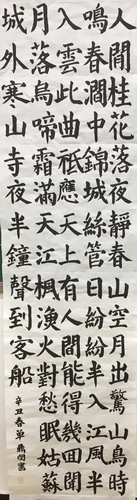 人閒桂花落夜靜春山空月出驚山鳥時
鳴春澗中錦城絲管日紛紛半入江風半
入雲此曲祇應天上有人間能得幾回聞
月落烏啼霜滿天江楓漁火對愁眠姑蘇
城外寒山寺夜半鐘聲到客船
辛丑春單